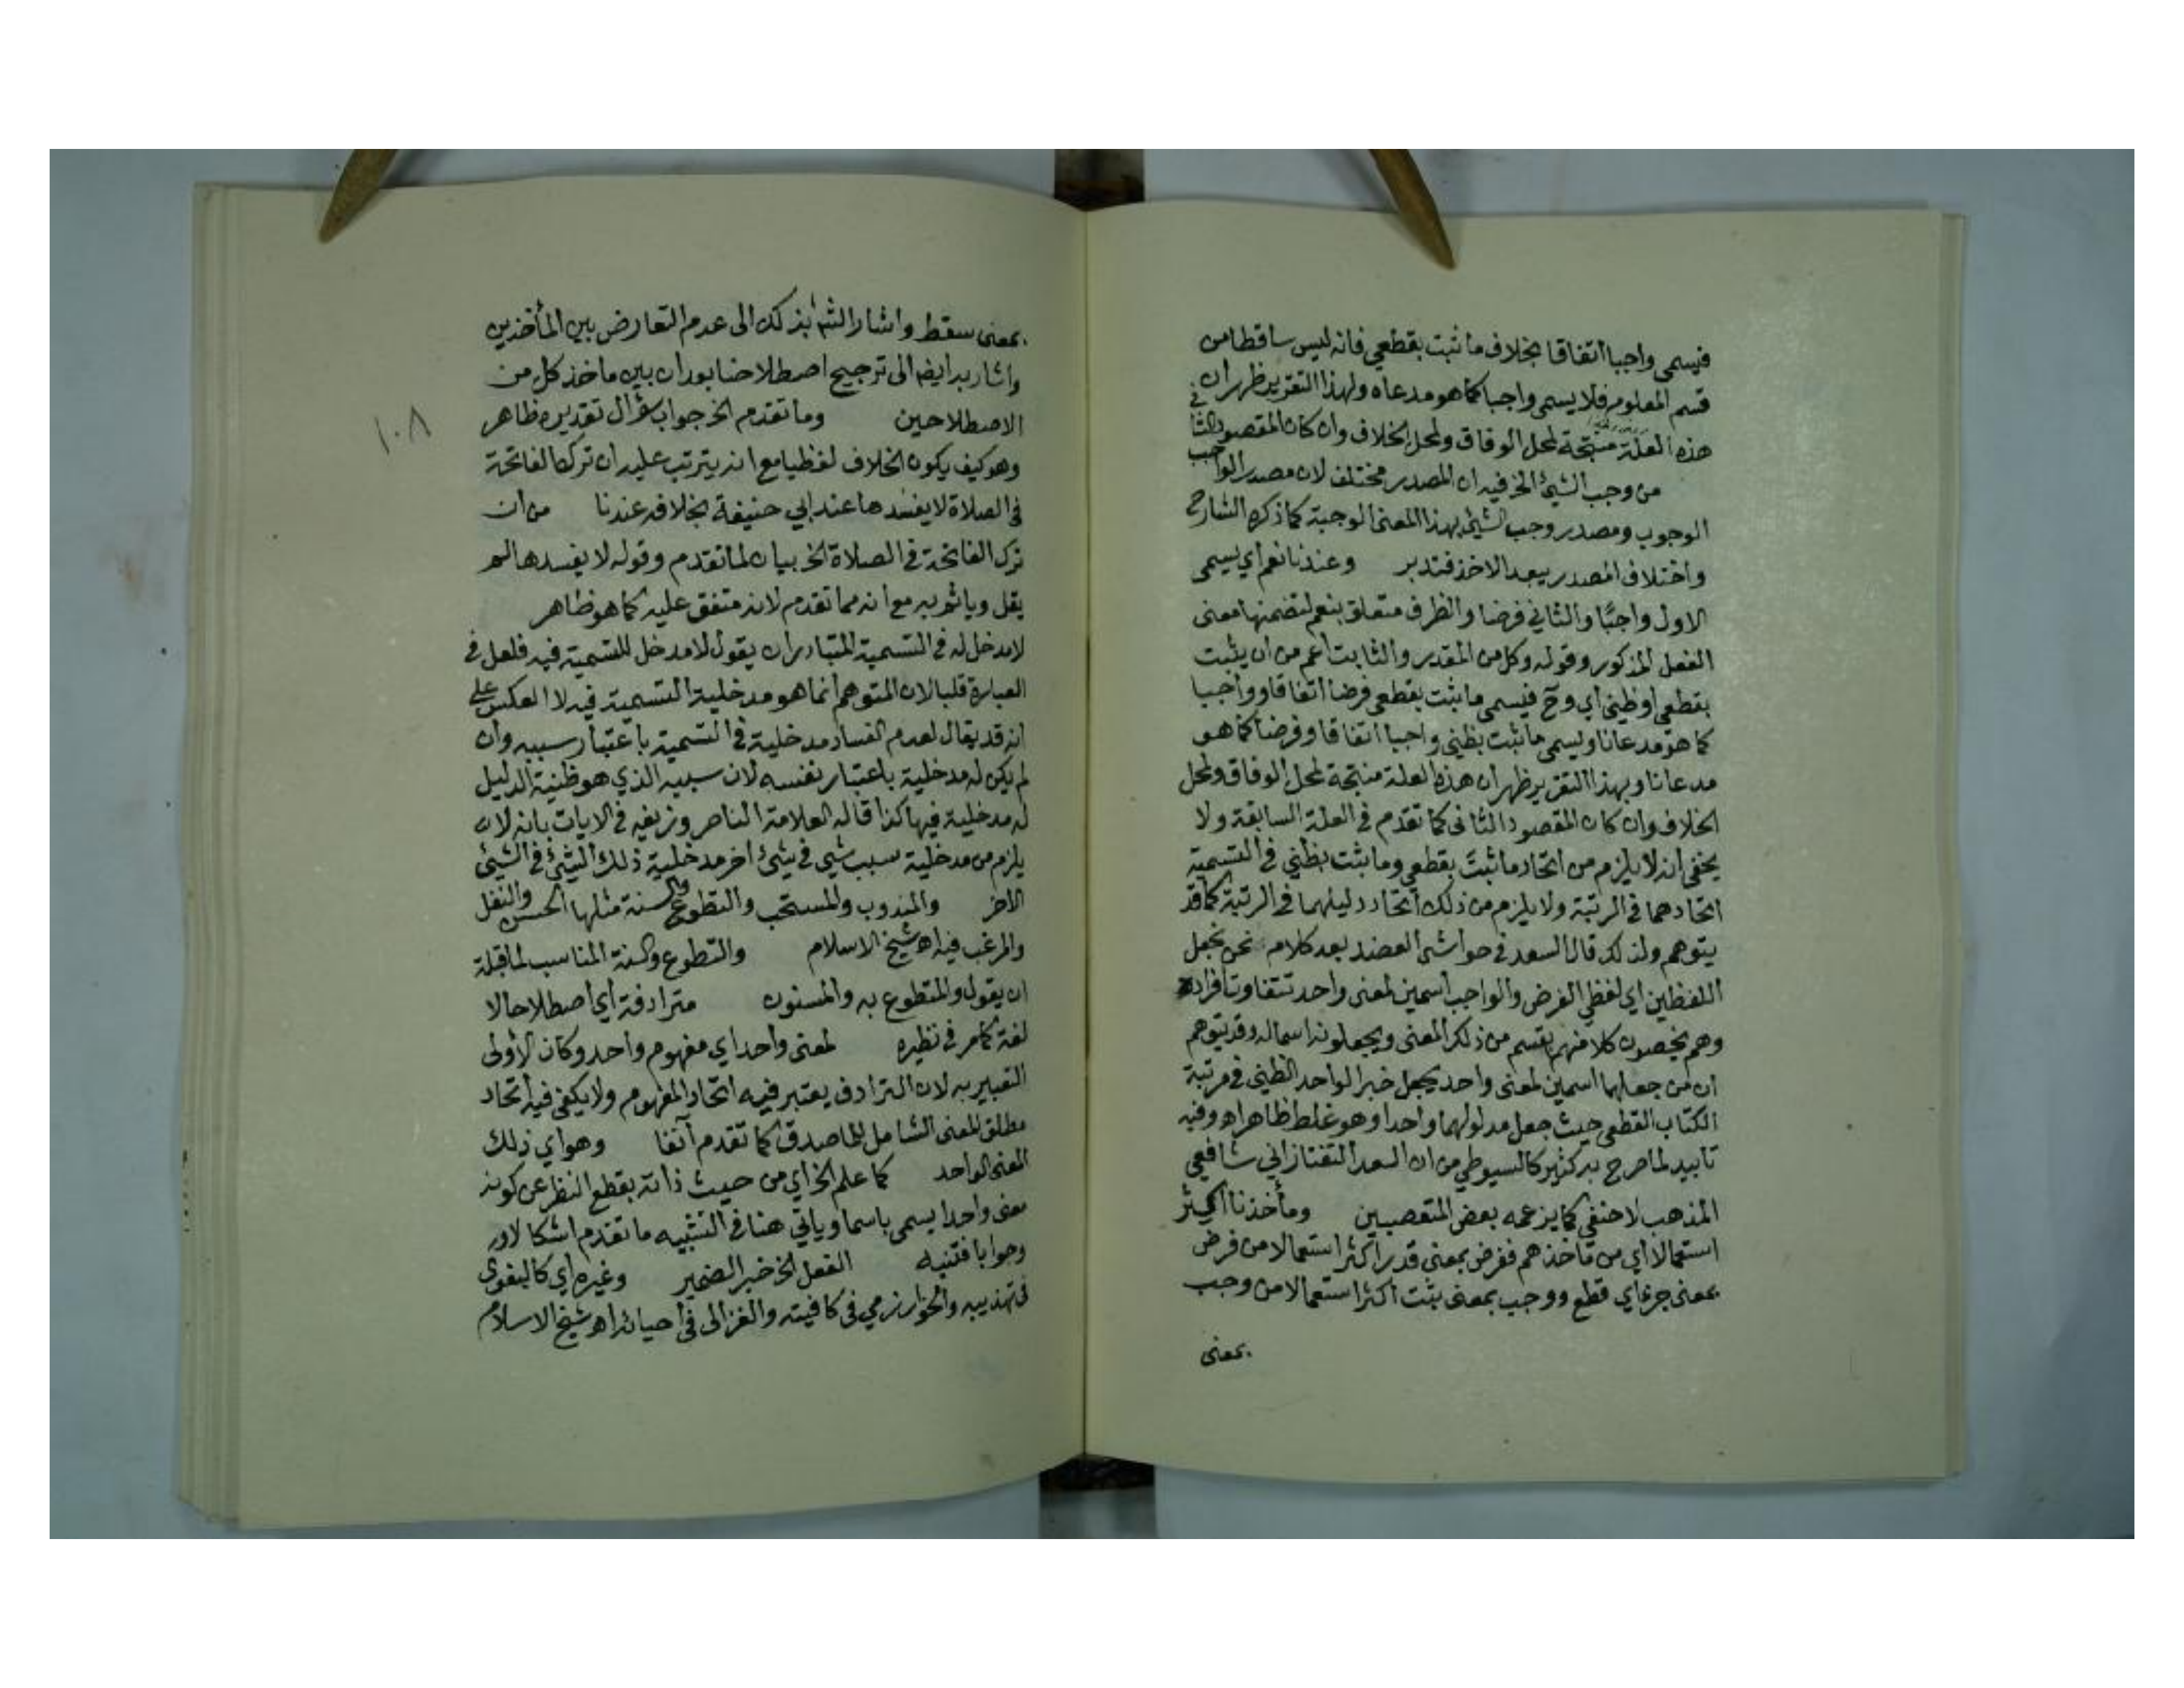 فيسمى واجبا اتفاقا بخلاف ما ثبت بقطعي فانه ليس ساقطا من
قسم المعلوم فلا يسمى واجبا كما هو مدعاه ولهذا التقرير ظهر ان
هذه العلة منتجة لمحل الوفاق ولمحل الخلاف وان كان المقصود الثاني
من وجب الشيئ الخ فيه ان المصدر مختلف لان مصدر الواجب
الوجوب ومصدر وجب الشيئ بهذا المعنى الوجبة كما ذكره الشارح
واختلاف المصدر يبعد الاخذ فتدبر وعندنا نعم اي يسمى
الاول واجبًا والثاني فرضا والظرف متعلق بنعم لتضمنها معنى
الفعل المذكور وقوله وكل من المقدر والثابت أعم من ان يثبت
بقطعي او ظني اي وح فيسمى ما ثبت بقطعي فرضا اتفاقا وواجبا
كما هو مدعانا ويسمى ما ثبت بظني واجبا اتفاقا وفرضا كما هو
مدعانا وبهذا التقرير ظهر ان هذه العلة منتجة لمحل الوفاق ولمحل
الخلاف وان كان المقصود الثاني كما تقدم في العلة السابقة ولا
يخفى انه لا يلزم من اتحاد ما ثبت بقطعي وما ثبت بظني في التسمية
اتحادهما في الرتبة ولا يلزم من ذلك اتحاد دليلهما في الرتبة كما قد
يتوهم ولذلك قال السعد في حواشي العضد بعد كلام نحن نجعل
اللفظين اي لفظي الفرض والواجب اسمين لمعنى واحد تتفاوت أفراده
وهم يخصون كلا منهما بقسم من ذلك المعنى ويجعلونه اسما له وقد يتوهم
ان من جعلهما اسمين لمعنى واحد يجعل خبر الواحد الظني في مرتبة
الكتاب القطعي حيث جعل مدلولهما واحدا وهو غلط ظاهر اه وفيه
تاييد لما صرح به كثير كالسيوطي من ان السعد التفتازاني شافعي
المذهب لا حنفي كما يزعمه بعض المتعصبين ومأخذنا اكثر
استعمالا اي من مأخذهم ففرض بمعنى قدر اكثر استعمالا من فرض
بمعنى جزءاي قطع ووجب بمعنى ثبت اكثر استعمالا من وجب
بمعنى
بمعنى سقط واشار الش بذلك الى عدم التعارض بين المأخذين
واشار به ايضا الى ترجيح اصطلاحنا بين ماخذ كل من
الاصطلاحين وما تقدم الخ جواب سؤال تقديره ظاهر
وهو كيف يكون الخلاف لفظيا مع انه يترتب عليه ان ترك الفاتحة
في الصلاة لا يفسدها عند ابي حنيفة بخلافه عندنا من ان
ترك الفاتحة في الصلاة الخ بيان لما تقدم وقوله لا يفسدها لم
يقل وياثم به مع انه مما تقدم لانه متفق عليه كما هو ظاهر
لا مدخل له في التسمية المتبادر ان يقول لا مدخل للتسمية فيه فلعل في
العبارة قلبا لان المتوهم انما هو مدخلية التسمية فيه لا العكس على
انه قد يقال لعدم الفساد مدخلية في التسمية باعتبار سببه وان
لم يكن له مدخلية باعتبار نفسه لان سببه الذي هو ظنية الدليل
له مدخلية فيها كذا قاله العلامة الناصر وزيفه في الايات بانه لا
يلزم من مدخلية سبب شيئ في شيئ اخر مدخلية ذلك الشيئ في الشيئ
الاخر والمندوب والمستحب والتطوع والسنة مثلها الحسن والنفل
والمرغب فيه اه شيخ الاسلام والتطوع والسنة المناسب لما قبله
ان يقول والمتطوع به والمسنون مترادفة اي اصطلاحا لا
لغة كما مر في نظيره لمعنى واحد اي مفهوم واحد وكان الأولى
التعبير به لان الترادف يعتبر فيه اتحاد المفهوم ولا يكفي فيه اتحاد
مطلق المعنى الشامل للماصدق كما تقدم آنفا وهو اي ذلك
المعنى الواحد كما علم الخ اي من حيث ذاته بقطع النظر عن كونه
معنى واحدا يسمى باسما وياتي هنا في التشبيه ما تقدم اشكالا
وجوابا فتنبه الفعل الخ خبر الضمير وغيره اي كالبغوي
في تهذيبه والخوارزمي في كافيته والغزالي في احيائه اه شيخ الاسلام
١٠٨